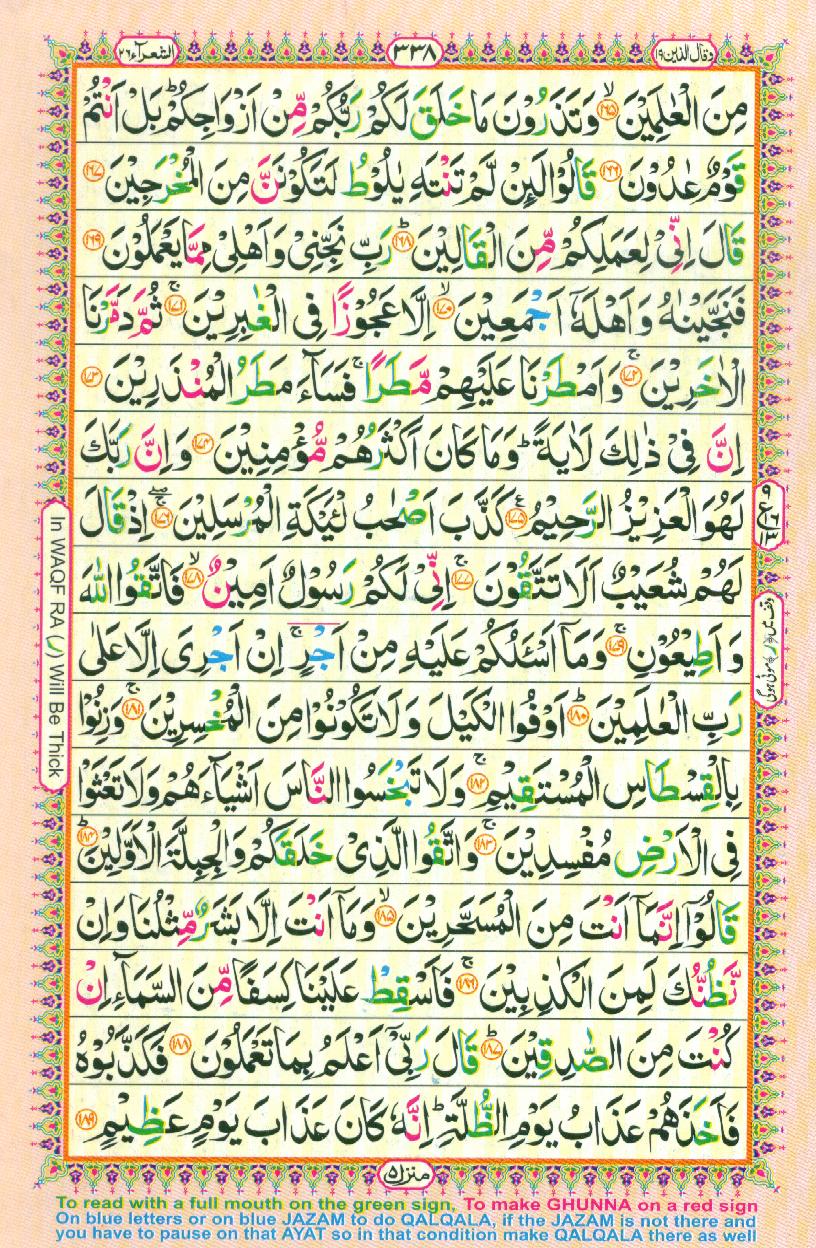 وقال الذین ١٩
٣٣٨
الشعرآء ٢٦
مِنَ الْعٰلَمِیْنَ ۙ﴿۱۶۵﴾ وَتَذَرُوْنَ مَا خَلَقَ لَكُمْ رَبُّكُمْ مِّنْ اَزْوَاجِكُمْ ؕ بَلْ اَنْتُمْ
قَوْمٌ عٰدُوْنَ ﴿۱۶۶﴾ قَالُوْا لَىِٕنْ لَّمْ تَنْتَهِ یٰلُوْطُ لَتَكُوْنَنَّ مِنَ الْمُخْرَجِیْنَ ﴿۱۶۷﴾
قَالَ اِنِّیْ لِعَمَلِكُمْ مِّنَ الْقَالِیْنَ ؕ﴿۱۶۸﴾ رَبِّ نَجِّنِیْ وَاَهْلِیْ مِمَّا یَعْمَلُوْنَ ﴿۱۶۹﴾
فَنَجَّیْنٰهُ وَاَهْلَهٗۤ اَجْمَعِیْنَ ۙ﴿۱۷۰﴾ اِلَّا عَجُوْزًا فِی الْغٰبِرِیْنَ ۚ﴿۱۷۱﴾ ثُمَّ دَمَّرْنَا
الْاٰخَرِیْنَ ۚ﴿۱۷۲﴾ وَاَمْطَرْنَا عَلَیْهِمْ مَّطَرًا ۚ فَسَآءَ مَطَرُ الْمُنْذَرِیْنَ ﴿۱۷۳﴾
اِنَّ فِیْ ذٰلِكَ لَاٰیَةً ؕ وَمَا كَانَ اَكْثَرُهُمْ مُّؤْمِنِیْنَ ﴿۱۷۴﴾ وَاِنَّ رَبَّكَ
لَهُوَ الْعَزِیْزُ الرَّحِیْمُ ﴿۱۷۵﴾ كَذَّبَ اَصْحٰبُ لْـَٔیْكَةِ الْمُرْسَلِیْنَ ۚۖ﴿۱۷۶﴾ اِذْ قَالَ
لَهُمْ شُعَیْبٌ اَلَا تَتَّقُوْنَ ۚ﴿۱۷۷﴾ اِنِّیْ لَكُمْ رَسُوْلٌ اَمِیْنٌ ۙ﴿۱۷۸﴾ فَاتَّقُوا اللّٰهَ
وَاَطِیْعُوْنِ ۚ﴿۱۷۹﴾ وَمَاۤ اَسْـَٔلُكُمْ عَلَیْهِ مِنْ اَجْرٍ ۚ اِنْ اَجْرِیَ اِلَّا عَلٰی
رَبِّ الْعٰلَمِیْنَ ؕ﴿۱۸۰﴾ اَوْفُوا الْكَیْلَ وَلَا تَكُوْنُوْا مِنَ الْمُخْسِرِیْنَ ۚ﴿۱۸۱﴾ وَزِنُوْا
بِالْقِسْطَاسِ الْمُسْتَقِیْمِ ۚ﴿۱۸۲﴾ وَلَا تَبْخَسُوا النَّاسَ اَشْیَآءَهُمْ وَلَا تَعْثَوْا
فِی الْاَرْضِ مُفْسِدِیْنَ ۚ﴿۱۸۳﴾ وَاتَّقُوا الَّذِیْ خَلَقَكُمْ وَالْجِبِلَّةَ الْاَوَّلِیْنَ ؕ﴿۱۸۴﴾
قَالُوْۤا اِنَّمَاۤ اَنْتَ مِنَ الْمُسَحَّرِیْنَ ۙ﴿۱۸۵﴾ وَمَاۤ اَنْتَ اِلَّا بَشَرٌ مِّثْلُنَا وَاِنْ
نَّظُنُّكَ لَمِنَ الْكٰذِبِیْنَ ۚ﴿۱۸۶﴾ فَاَسْقِطْ عَلَیْنَا كِسَفًا مِّنَ السَّمَآءِ اِنْ
كُنْتَ مِنَ الصّٰدِقِیْنَ ؕ﴿۱۸۷﴾ قَالَ رَبِّیْۤ اَعْلَمُ بِمَا تَعْمَلُوْنَ ﴿۱۸۸﴾ فَكَذَّبُوْهُ
فَاَخَذَهُمْ عَذَابُ یَوْمِ الظُّلَّةِ ؕ اِنَّهٗ كَانَ عَذَابَ یَوْمٍ عَظِیْمٍ ﴿۱۸۹﴾
In WAQF RA (ر) Will Be Thick
منزل ۵
To read with a full mouth on the green sign, To make GHUNNA on a red sign
On blue letters or on blue JAZAM to do QALQALA, if the JAZAM is not there and
you have to pause on that AYAT so in that condition make QALQALA there as well